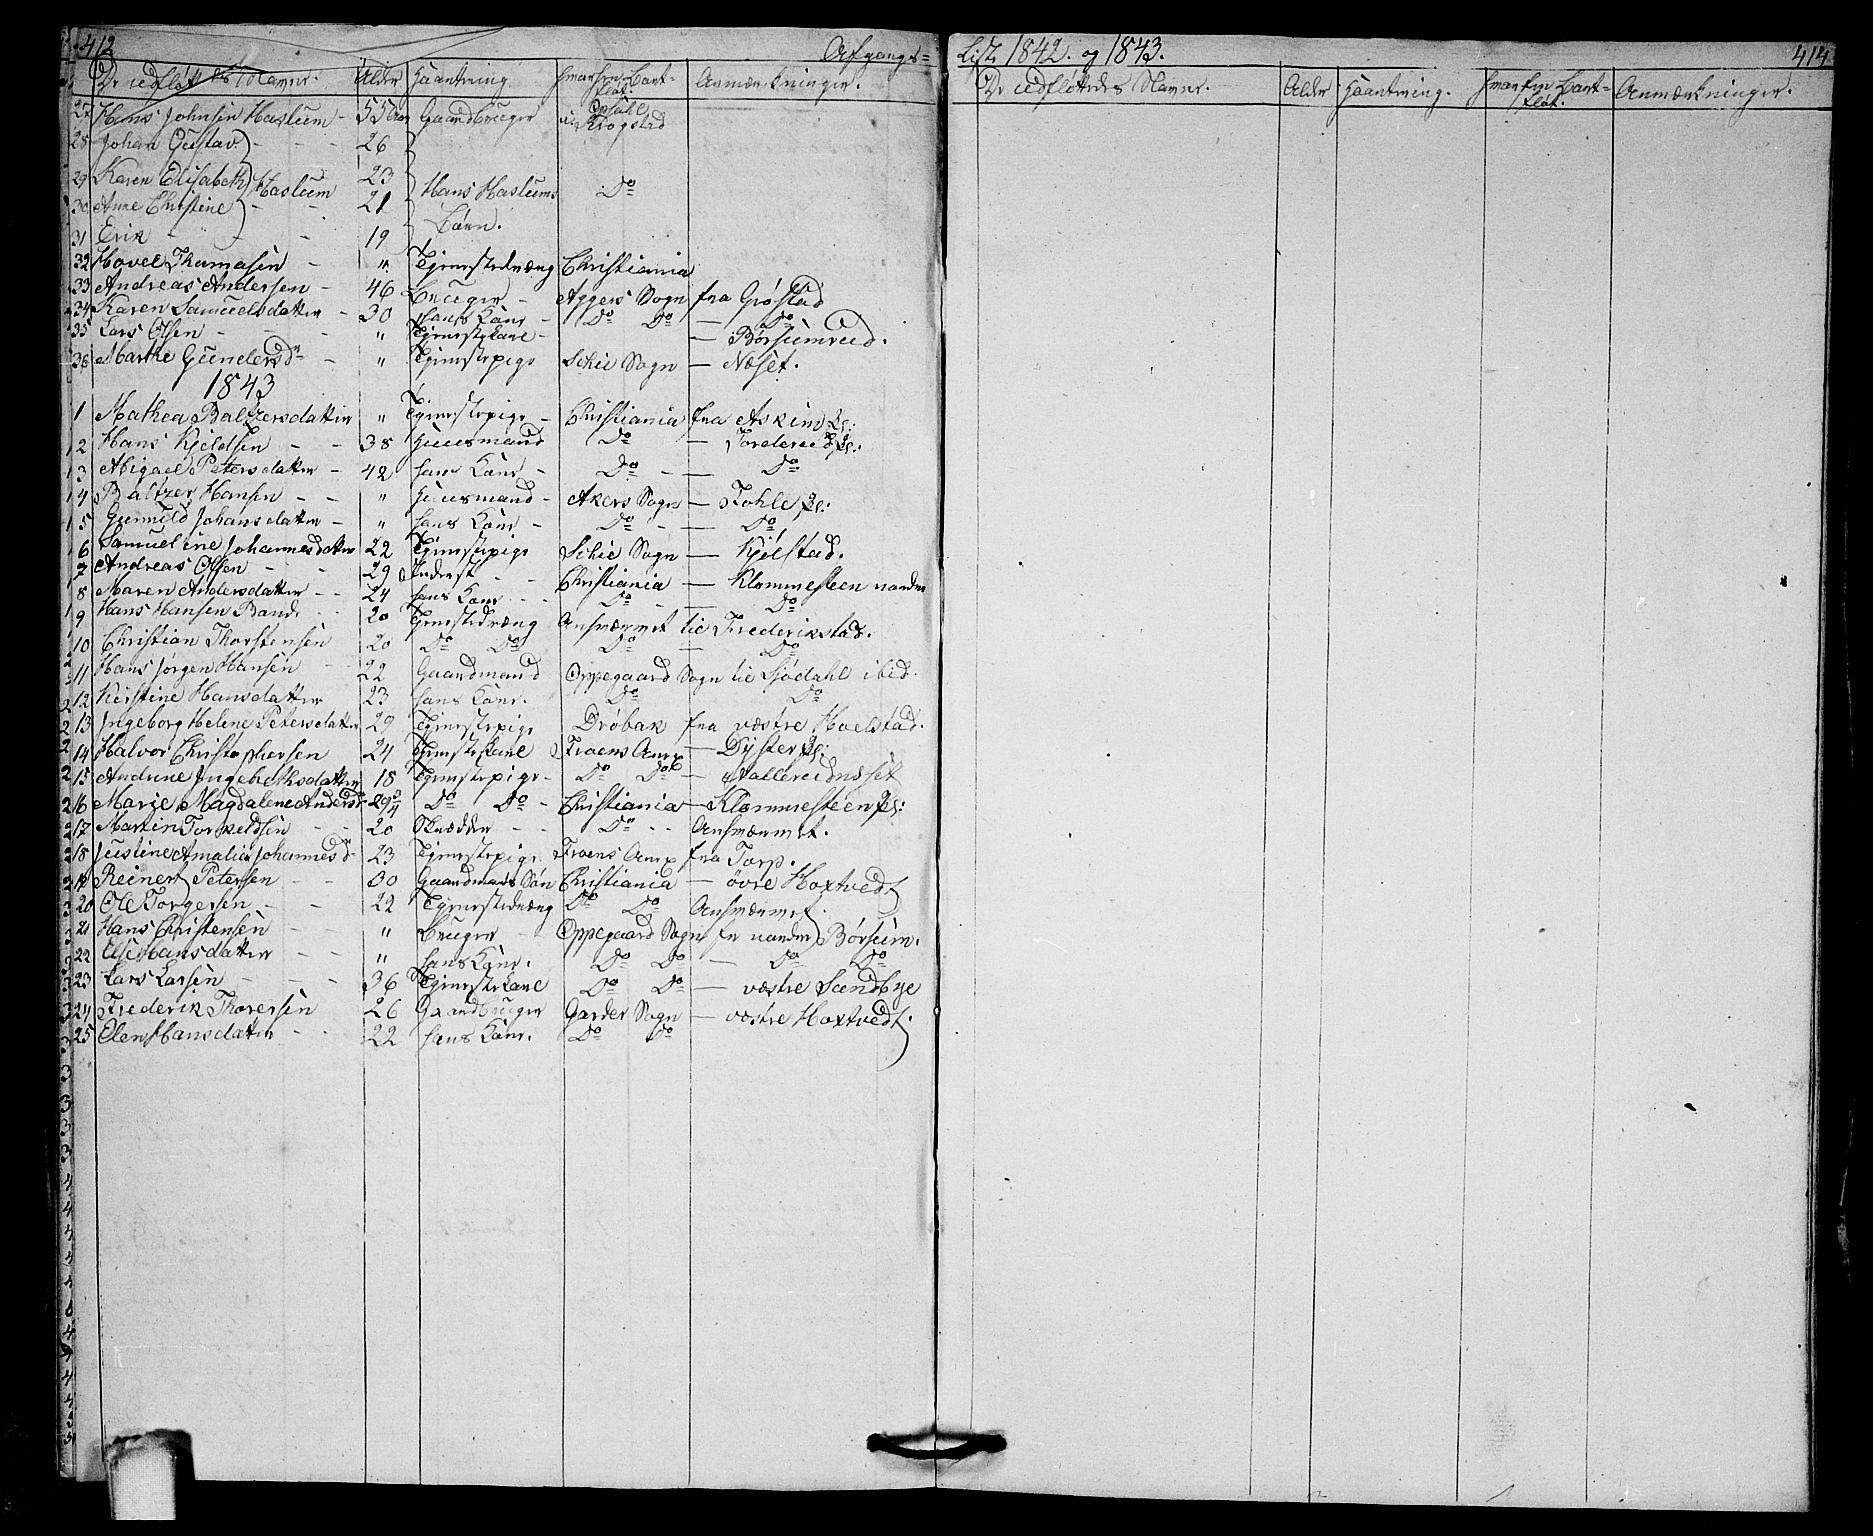 412 Afgangs=
De udfløttedes Navne. Alder Haantering Hvorhen Bort-fløt. Anmærkninger.
27 Hans Johnsen Haslum - 55 Gaardbruger Krogstad
28 Johan Gustav - - - 26
29 Karen Elisabeth Haslum 23 Hans Haslums Do
30 Anne Christine - - 21 Børn.
31 Erik - - - 19
32 Hovel Thomasen - " Tjenestedræng Christiania
33 Andreas Andersen - 46 Bruger - Aggers Sogn fra Grøstad
34 Karen Samuelsdatter - 30 hans Kone - Do Do - Do
35 Lars Olsen - - - " Tjenestekarl - - Børsumrud.
36 Marthe Gundersdr " Tjenestepige Schie Sogn - Næset.
1843
1 Mathea Baltzersdatter " Tjenestepige - Christiania fra Askim Pl:
2 Hans Kjeldsen - - 38 Huusmand Do - Pl:
3 Abigael Petersdatter - 42 hans Kone - Do - - Do
4 Baltzer Hansen - - " Huusmand - Akers Sogn - Tohle Pl:
5 Gunnild Johansdatter - " hans Kone - Do - - Do
6 Samueline Johannesdatter 22 Tjenestepige Schie Sogn - Kjølstad.
7 Andreas Olsen - - - 29 Inderst - - Christiania - Klommesteen nordre
8 Maren Andersdatter - - 24 hans Kone - - Do - - Do
9 Hans Hansen - - 20 Tjenestedræng Ansværmet til Frederikstad.
10 Christian Thorstensen 20 Do Do Do - Do
11 Hans Jørgen Hansen - - 22 Gaardmand Oppegaard Sogn til Sjødahl ibid.
12 Kirstine Hansdatter 23 hans Kone. Do Do
13 Ingeborg Helene Petersdatter 29 Tjenestepige Drøbak fra vestre Hoelstad.
14 Halvor Christophersen 24 Tjenestekarl Froens Anex - Dyster Pl:
15 Andrine Ingebrethsdatter 18 Tjenestepige - Do Do -
16 Marie Magdalene Andersdr 29 3/4 Do Do - Christiania - Klommesteen Pl:
17 Martin Torkeldsen - - 20 Skrædder - - Do - - Ansværmet.
18 Justine Amalie Johannesdr 23 Tjenestepige. Froens Anex fra Torp.
19 Reinert Petersen - - 30 Gaardmands Søn Christiania - øvre Hoxtvedt
20 Ole Torgersen - - 22 Tjenestedræng Do Do Ansværmet.
21 Hans Christensen - - " Bruger - Oppegaard Sogn fr nordre Børsum.
22 Else Hansdatter - - " hans Kone. Do Do - Do Do
23 Lars Larsen - - - 36 Tjenestekarl Do Do - vestre Sundbye
24 Frederik Thoresen 26 Gaardbruger Garder Sogn - vestre Hoxtvedt.
25 Elen Hansdatter - - 22 hans Kone. Do Do
List 1842. og 1843. 414
De udfløttedes Navne. Alder Haantering. Hvorhen Bort-fløt. Anmærkninger.